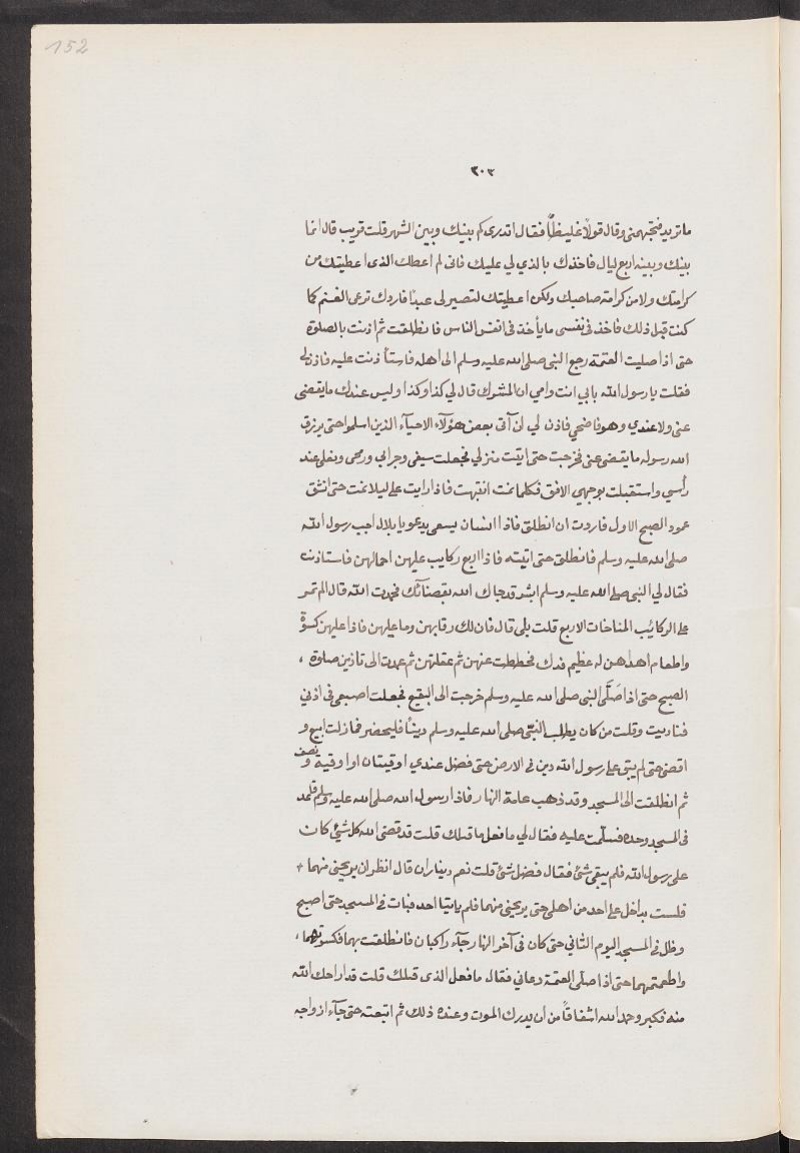 152
٣٠٣
ما تريد فتجهمنى وقال قولاً غليظاً فقال اتدرى كم بينك وبين الشهر قلت قريب قال انما
بينك وبينه اربع ليال فاخذك بالذي لي عليك فانى لم اعطك الذى اعطيتك من
كرامتك ولا من كرامة صاحبك ولكن اعطيتك لتصير لى عبدًا فاردك ترعى الغنم كما
كنت قبل ذلك فاخذ فى نفسى ما يأخذ فى انفس الناس فانطلقت ثم اذنت بالصلوة
حتى اذا صليت العتمة رجع النبى صلى الله عليه وسلم الى اهله فاستأذنت عليه فاذن لى
فقلت يا رسول الله بابي انت وامي ان المشرك قال لي كذا وكذا وليس عندك ما يقضى
عنى ولا عندي وهو فاضحي فاذن لي ان آتى بعض هؤلآء الاحيآء الذين اسلموا حتى يرزق
الله رسوله ما يقضى عنى فخرجت حتى اتيت منزلي فجعلت سيفى وجرابي ورمحى ونعلى عند
رأسي واستقبلت بوجهي الافق فكلما نمت انتبهت فاذا رايت على ليلا نمت حتى انشق
عمود الصبح الاول فاردت ان انطلق فاذا انسان يسعى يدعو يا بلال اجب رسول الله
صلى الله عليه وسلم فانطلقت حتى اتيته فاذا اربع ركايب عليهن احمالهن فاستاذنت
فقال لي النبى صلى الله عليه وسلم ابشر قد جاك الله بقضائك فحمدت الله قال الم تمر
على الركائب المناخات الاربع قلت بلى قال فان لك رقابهن وما عليهن فاذا عليهن كسوة
واطعام اهداهن له عظيم فدك فحططت عنهن ثم عقلتهن ثم عمدت الى تاذين صلوة ،
الصبح حتى اذا صَلَّى النبى صلى الله عليه وسلم خرجت الى البقيع فجعلت اصبعى فى اذني
فناديت وقلت من كان يطلب النبّى صلى الله عليه وسلم دينًا فليحضر فما زلت ابيع و
اقضى حتى لم يبق على رسول الله دين فى الارض حتى فضل عندي اوقيتان او اوقية ونصف
ثم انطلقت الى المسجد وقد ذهب عامة النهار فاذا رسول الله صلى الله عليه وسلم قاعد
فى المسجد وحده فسلّمت عليه فقال لي ما فعل ما قبلك قلت قد قضى الله كل شئ كان
على رسول الله فلم يبقى شئ فقال فضل شئ قلت نعم ديناران قال انظر ان يريحنى منهما
فلست بداخل على احد من اهلى حتى يريحنى منهما فلم ياتينا احد فبات فى المسجد حتى اصبح
وظل فى المسجد اليوم الثاني حتى كان فى آخر النهار جآء راكبان فانطلقت بهما فكسوتهما ،
واطعمتهما حتى اذا صلى العتمة دعاني فقال ما فعل الذى قبلك قلت قد اراحك الله
منه فكبر وحمد الله اشفاقاً من ان يدرك الموت وعنده ذلك ثم اتبعته حتى جآء ازواجه